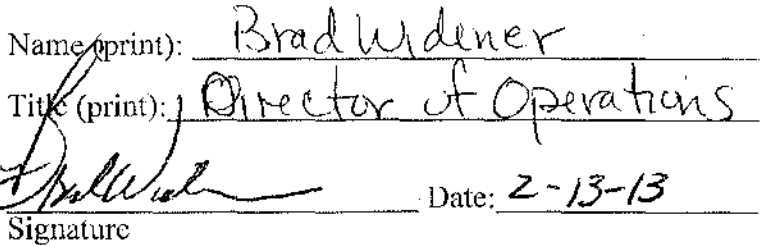 Name (print): Brad Widener
Title (print): Director of Operations
Brad Widener Date: 2-13-13
Signature